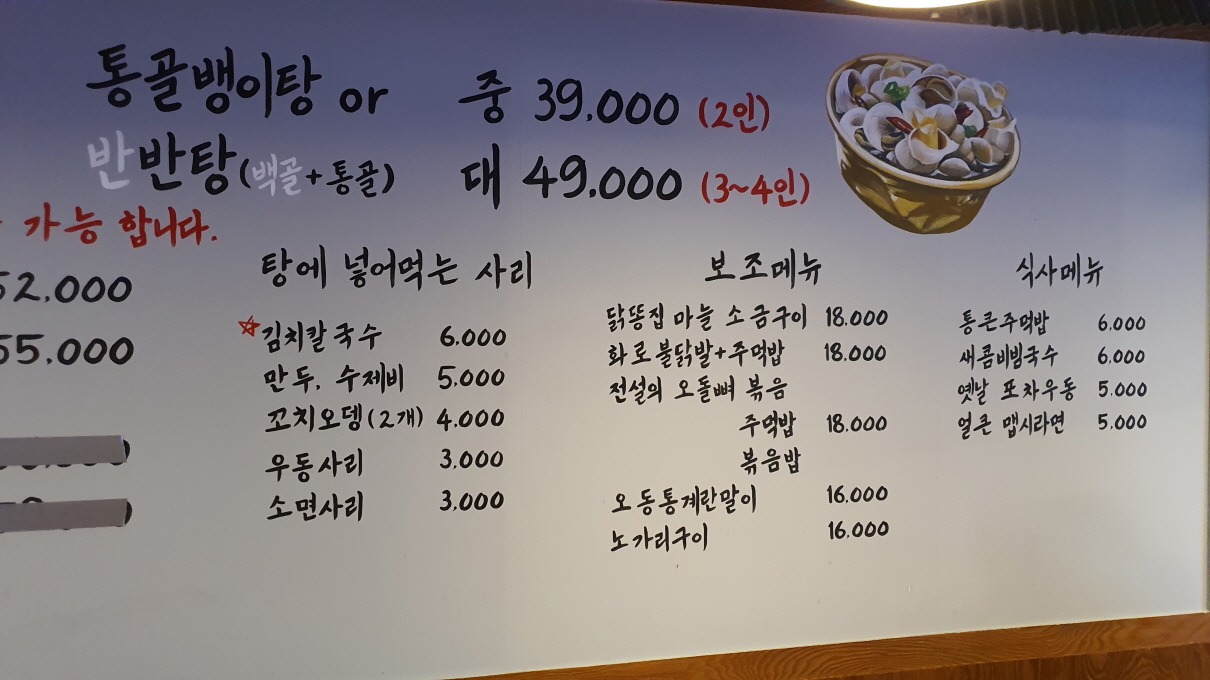 통골뱅이탕 or 중 39.000 (2인)
반반탕(백골+통골) 대 49.000 (3~4인)
가능 합니다.
52.000
55.000
탕에 넣어먹는 사리
☆김치칼국수 6.000
만두, 수제비 5.000
꼬치오뎅(2개) 4.000
우동사리 3.000
소면사리 3.000
보조메뉴
닭똥집 마늘 소금구이 18.000
화로불닭발+주먹밥 18.000
전설의 오돌뼈 볶음
주먹밥 18.000
볶음밥
오동통계란말이 16.000
노가리구이 16.000
식사메뉴
통큰주먹밥 6.000
새콤비빔국수 6.000
옛날 포차우동 5.000
얼큰 맵시라면 5.000